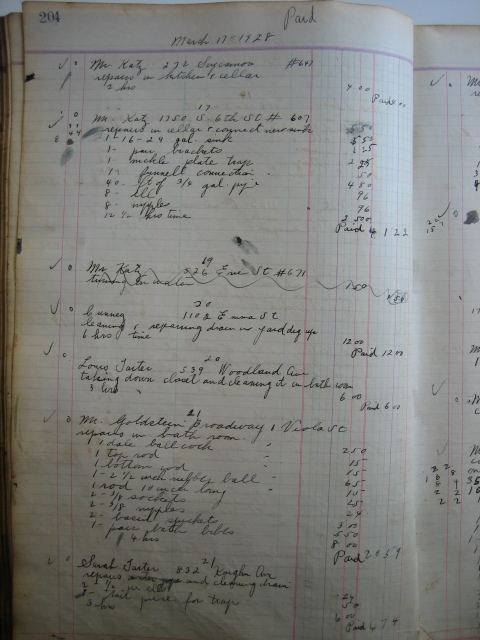 204
Paid
March 17 1928
Mr. Katz 272 Sycamore #647
repairs in kitchen & cellar
2 hrs 4 00
Paid 4 00
17
Mr. Katz 1750 S. 6th St # 607
repairs in cellar & connect new sink
1-16-24 gal. sink 5 50
1- pair brackets 1 25
1- nickle plate trap 2 25
1- funnell connection 50
40- ft of 3/4 gal. pipe 4 80
8- Ell 96
8- nipples 96
12 1/2 hrs time 2 500
Paid 4 1 22
19
Mr. Katz 526 Erie St #671
turning on water
20
1102 Emma St
cleaning & repairing drain in yard dug up
6 hrs time 12 00
Paid 12 00
20
Louis Tarter 539 Woodland Av
taking down closet and cleaning it in bath room
3 hrs 6 00
Paid 6 00
21
Mr. Goldstein Broadway & Viola St
repairs in bath room
1 dale ball cock 2 50
1 top rod 15
1 bottom rod 15
1- 2 1/2 inch rubber ball 65
1 rod 10 inch long 15
2- 3/8 sockets 25
2- 3/8 nyples 24
2- basin spickets 3 00
1- pair bath bibbs 5 50
4 hrs 8 00
Paid 20 59
21
Sarah Tarter 832 Kaighn Av
repairs and cleaning drain
24
1- tail piece for trap 50
3 hrs 6 00
Paid 6 74